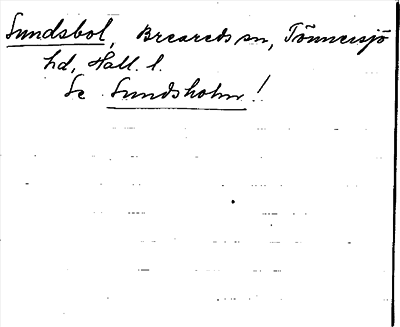 Sundsbol, Breareds sn, Tönnersjö
hd, Hall. l.
Se Sundsholm!